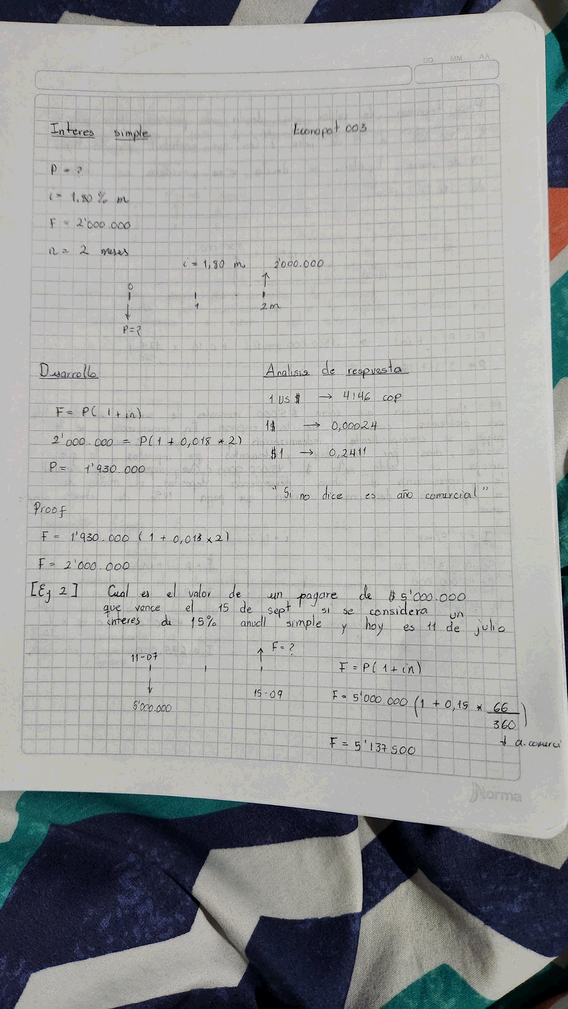 DD MM AA
Interes simple
Econopat 003
P = ?
i = 1,80 % m
F = 2'000.000
n = 2 meses
i = 1,80 m 2'000.000
0
1 2m
P=?
Desarrollo
F = P( 1 + in)
2'000.000 = P(1 + 0,018 * 2)
P = 1'930.000
Analisis de respuesta
1 US $ → 4146 COP
1$ → 0,00024
$1 → 0,2411
"Si no dice es año comercial"
Proof
F = 1'930.000 ( 1 + 0,018 x 2)
F = 2'000.000
[Ej 2] Cual es el valor de un pagare de $ 5'000.000
que vence el 15 de sept si se considera un
interes de 15% anual simple y hoy es 11 de julio
11-07 F = ?
5'000.000 15-09
F = P( 1 + in)
F = 5'000.000 (1 + 0,15 * 66/360)
↓ a. comerci
F = 5'137500
Norma